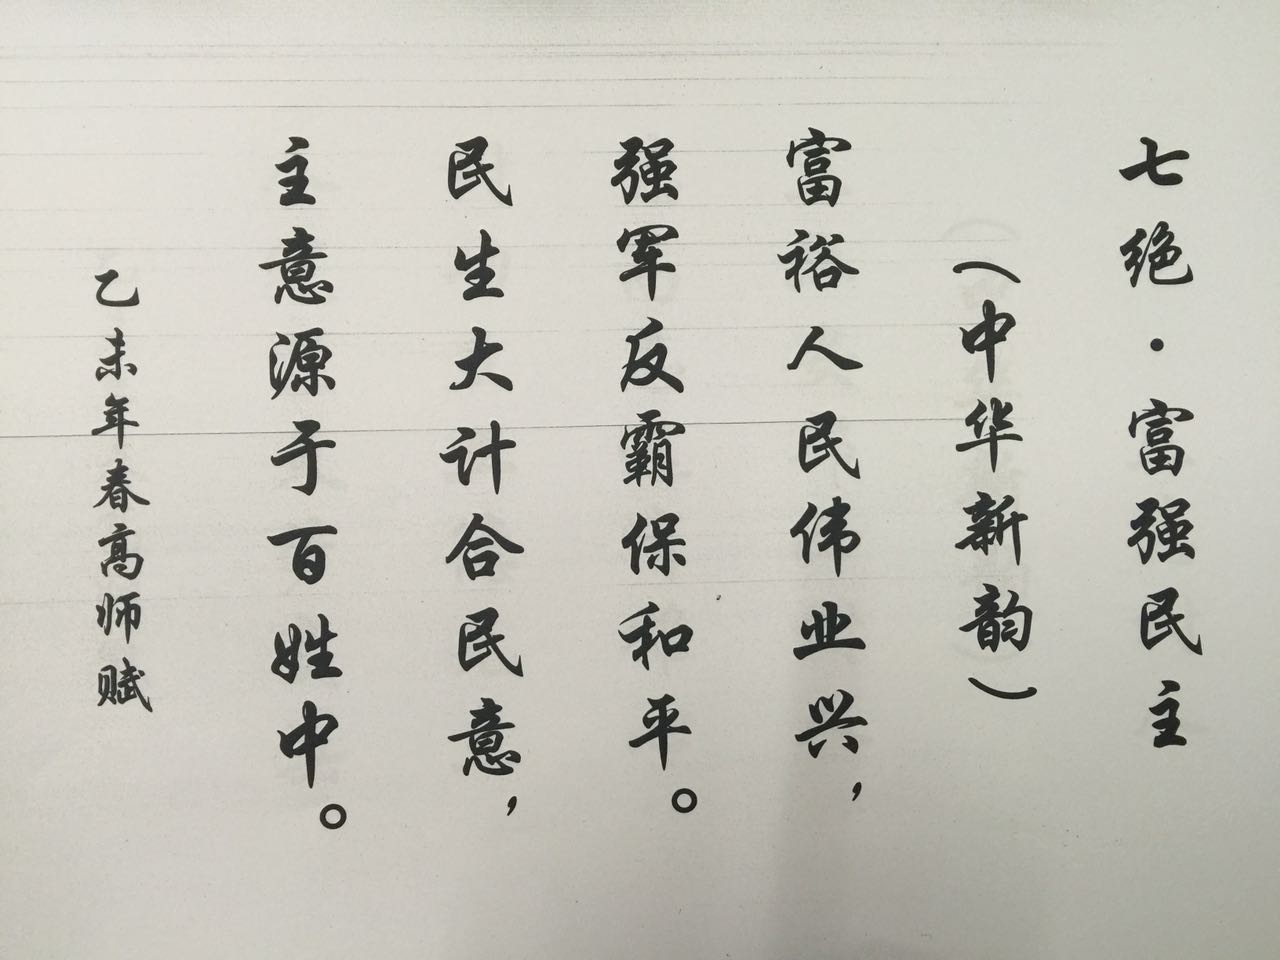 七绝·富强民主
（中华新韵）
富裕人民伟业兴，
强军反霸保和平。
民生大计合民意，
主意源于百姓中。
乙未年春高师赋